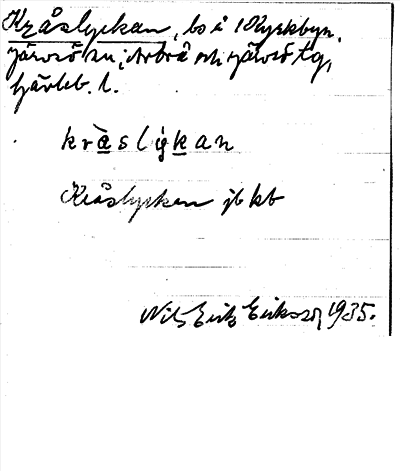 Kråslyckan, bs i 1 Kyrkbyn,
Järvsö sn, i Arbrå och Järvsö tg,
Gävleb. l.
kràslykan
Kråslyckan jb kb
Nils Erik Eriksson 1935.